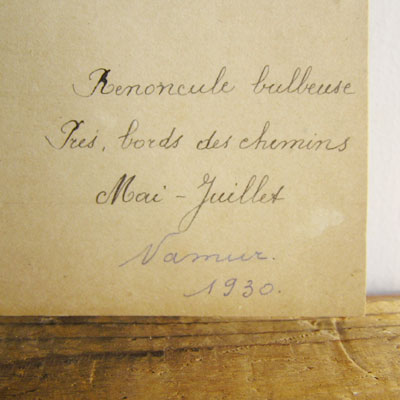 Renoncule bulbeuse
Prés, bords des chemins
Mai - Juillet
Namur.
1930.